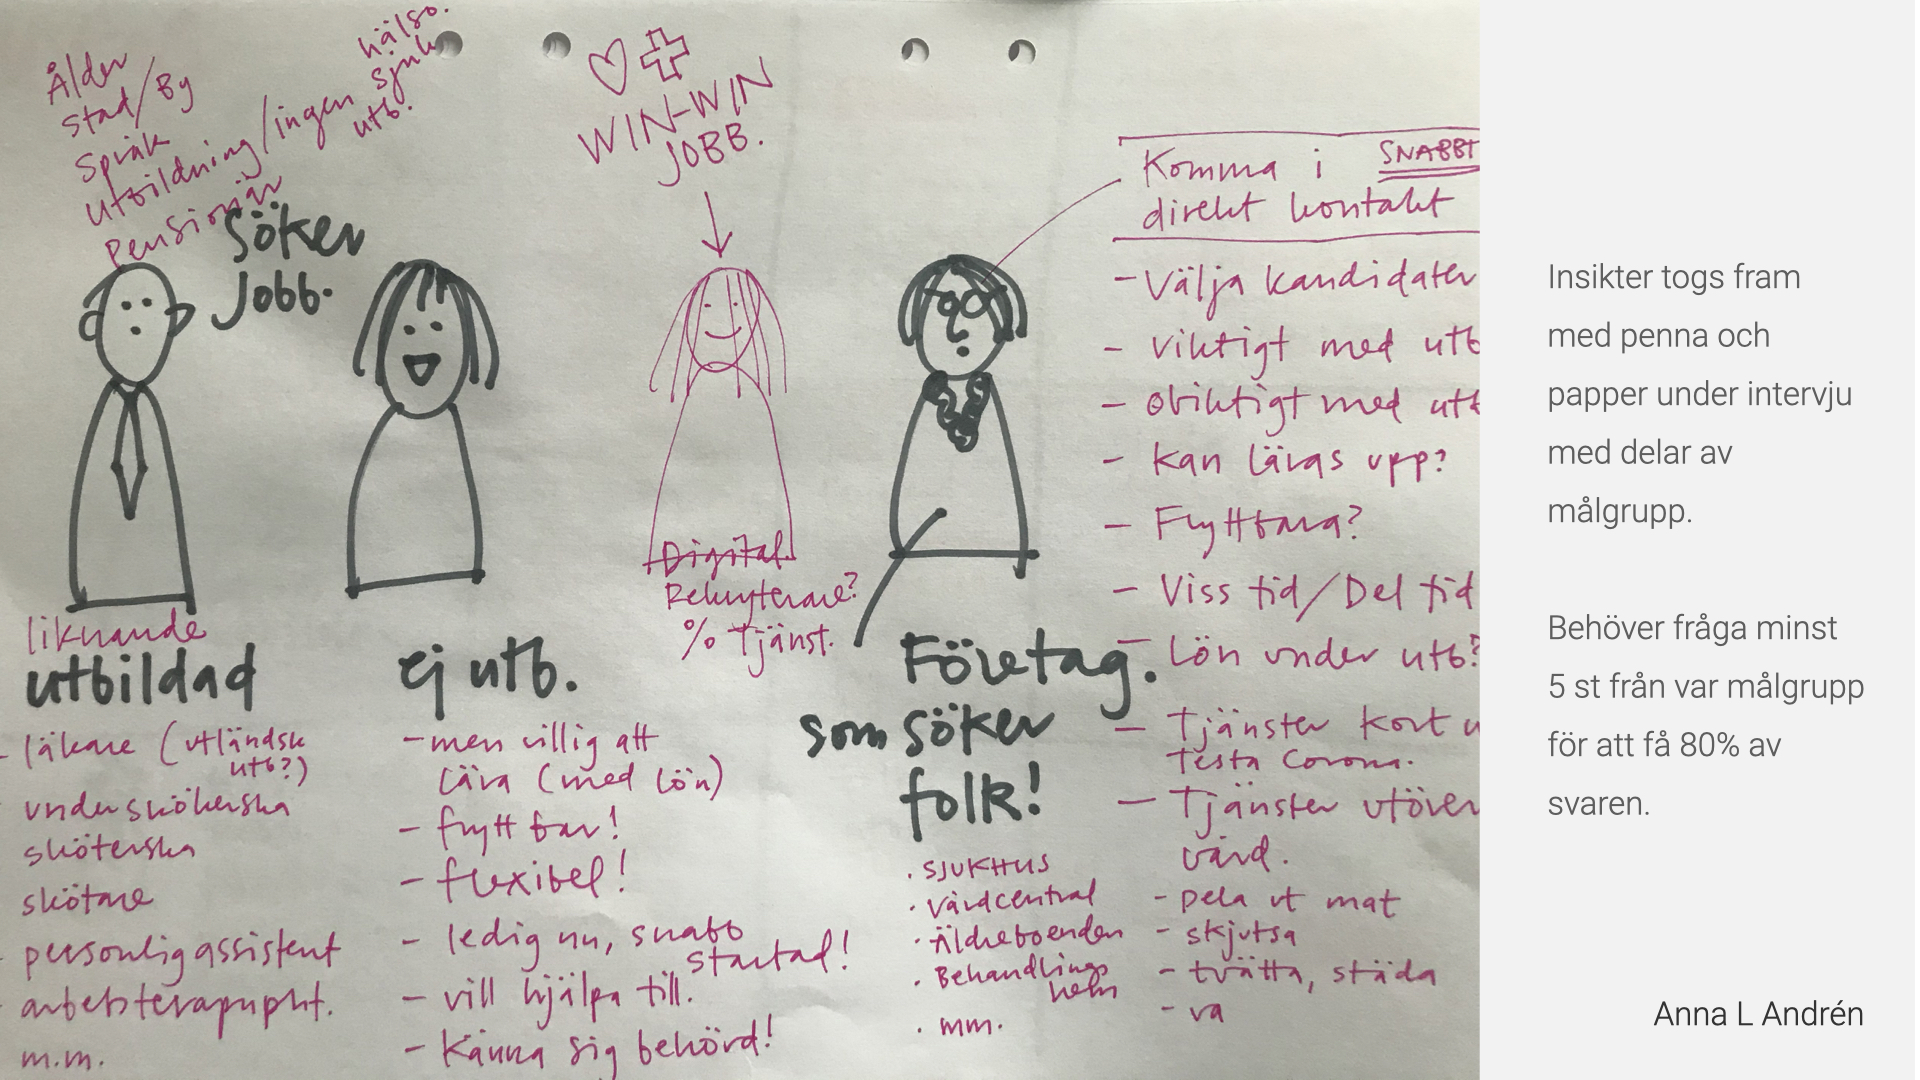 Ålder
stad/By
språk
utbildning/ingen
hälso.
sjuk
utb.
Pensionär
söker
jobb.
WIN-WIN
JOBB.
liknande
utbildad
- läkare (utländsk
utb?)
undersköterska
sköterska
skötare
- personlig assistent
- arbetsterapupht.
m.m.
ej utb.
- men villig att
lära (med lön)
- flyttbar!
- flexibel!
- ledig nu, snabb
startad!
- vill hjälpa till.
- Känna sig behörd!
Digital
Rekryterare?
% Tjänst.
Företag.
som söker
folk!
. SJUKHUS
. Vårdcentral
. Äldreboenden
. Behandlings
hem
. mm.
Komma i SNABBT
direkt kontakt
- Välja kandidater
- viktigt med utb
- oviktigt med utb
- kan läras upp?
- Flyttbara?
- Viss tid/Del tid
- Lön under utb?
- Tjänster kort
Testa Corona.
- Tjänster utöver
vård.
- Dela ut mat
- skjutsa
- tvätta, städa
- va
Insikter togs fram
med penna och
papper under intervju
med delar av
målgrupp.
Behöver fråga minst
5 st från var målgrupp
för att få 80% av
svaren.
Anna L Andrén